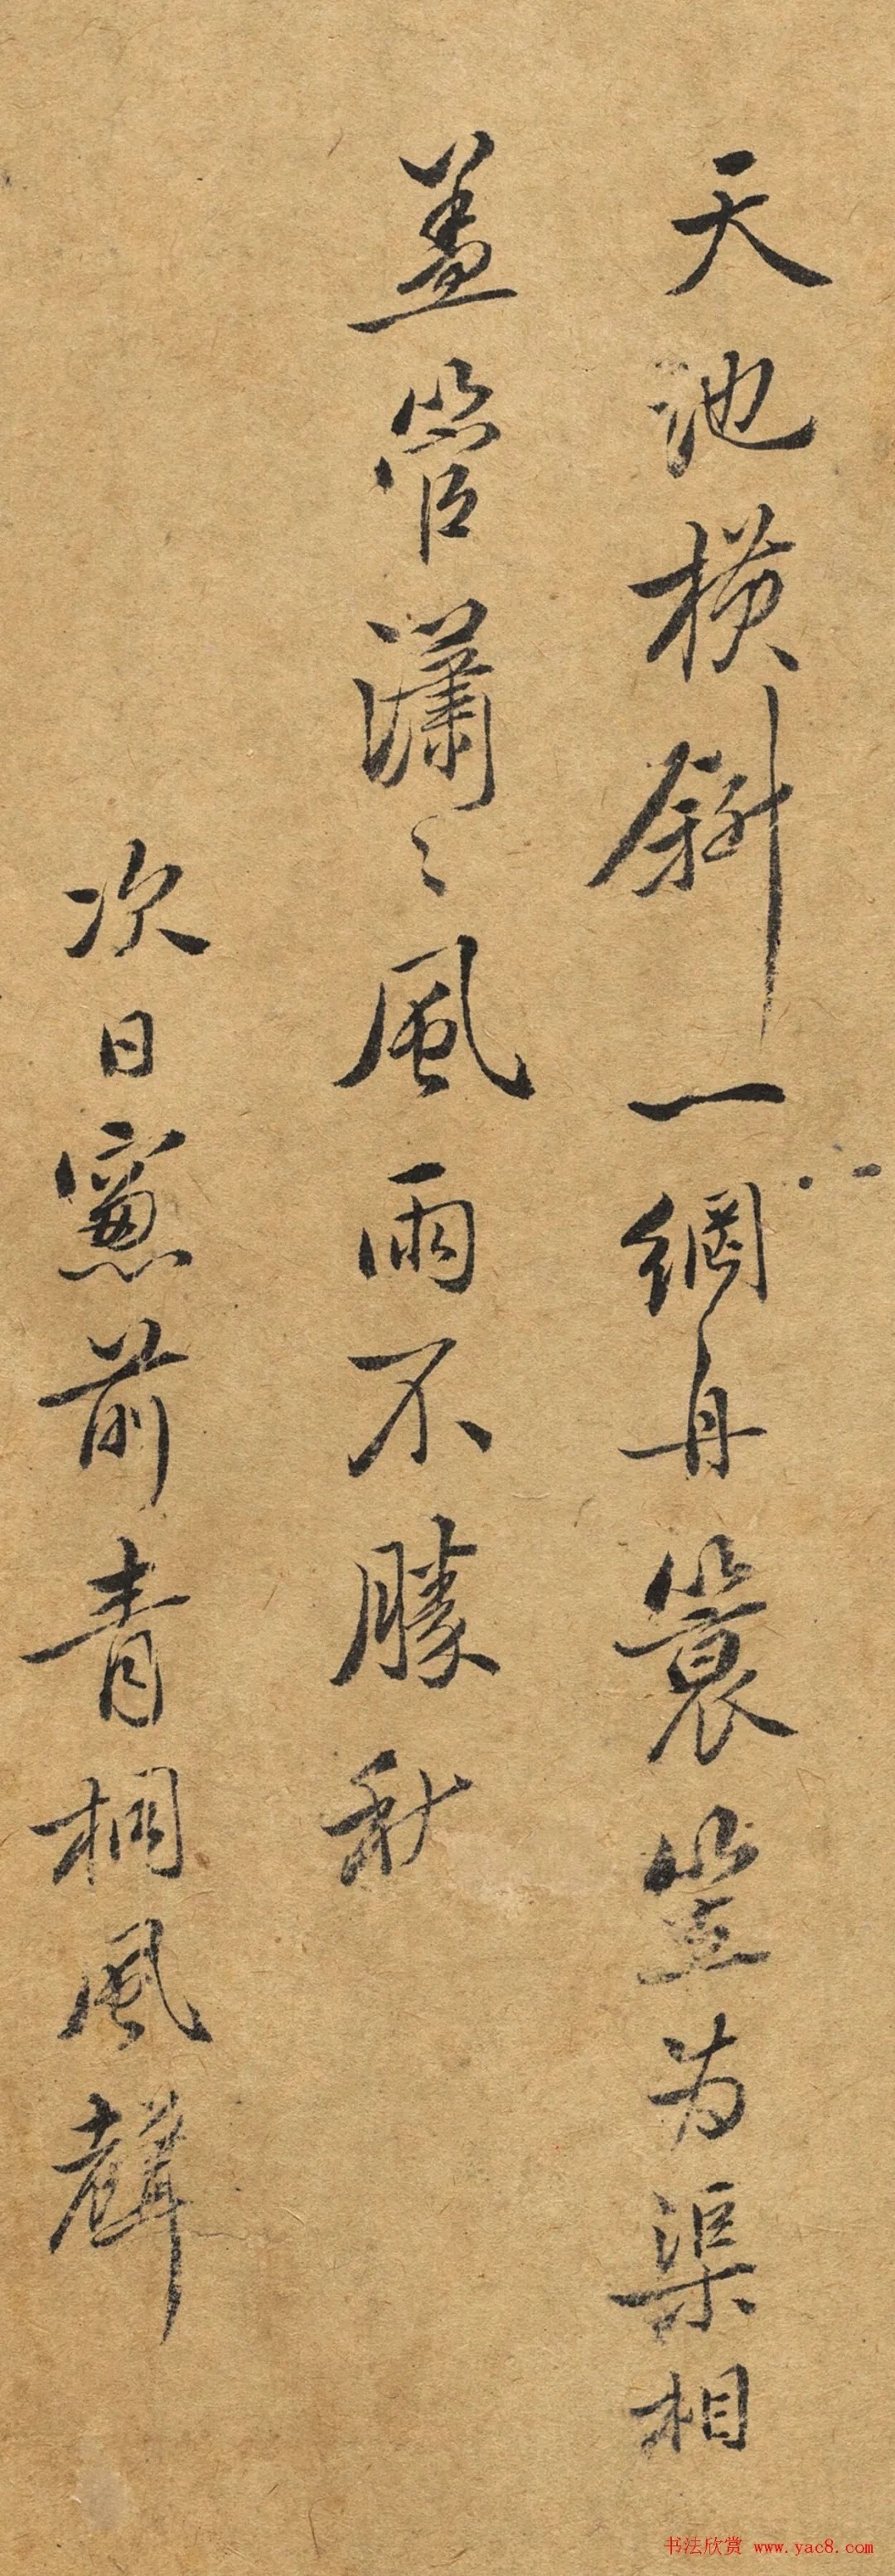 天池橫斜一網舟蓑笠為渠相
盖管瀟〻風雨不勝秋
次日窻前青桐風聲
书法欣赏 www.yac8.com